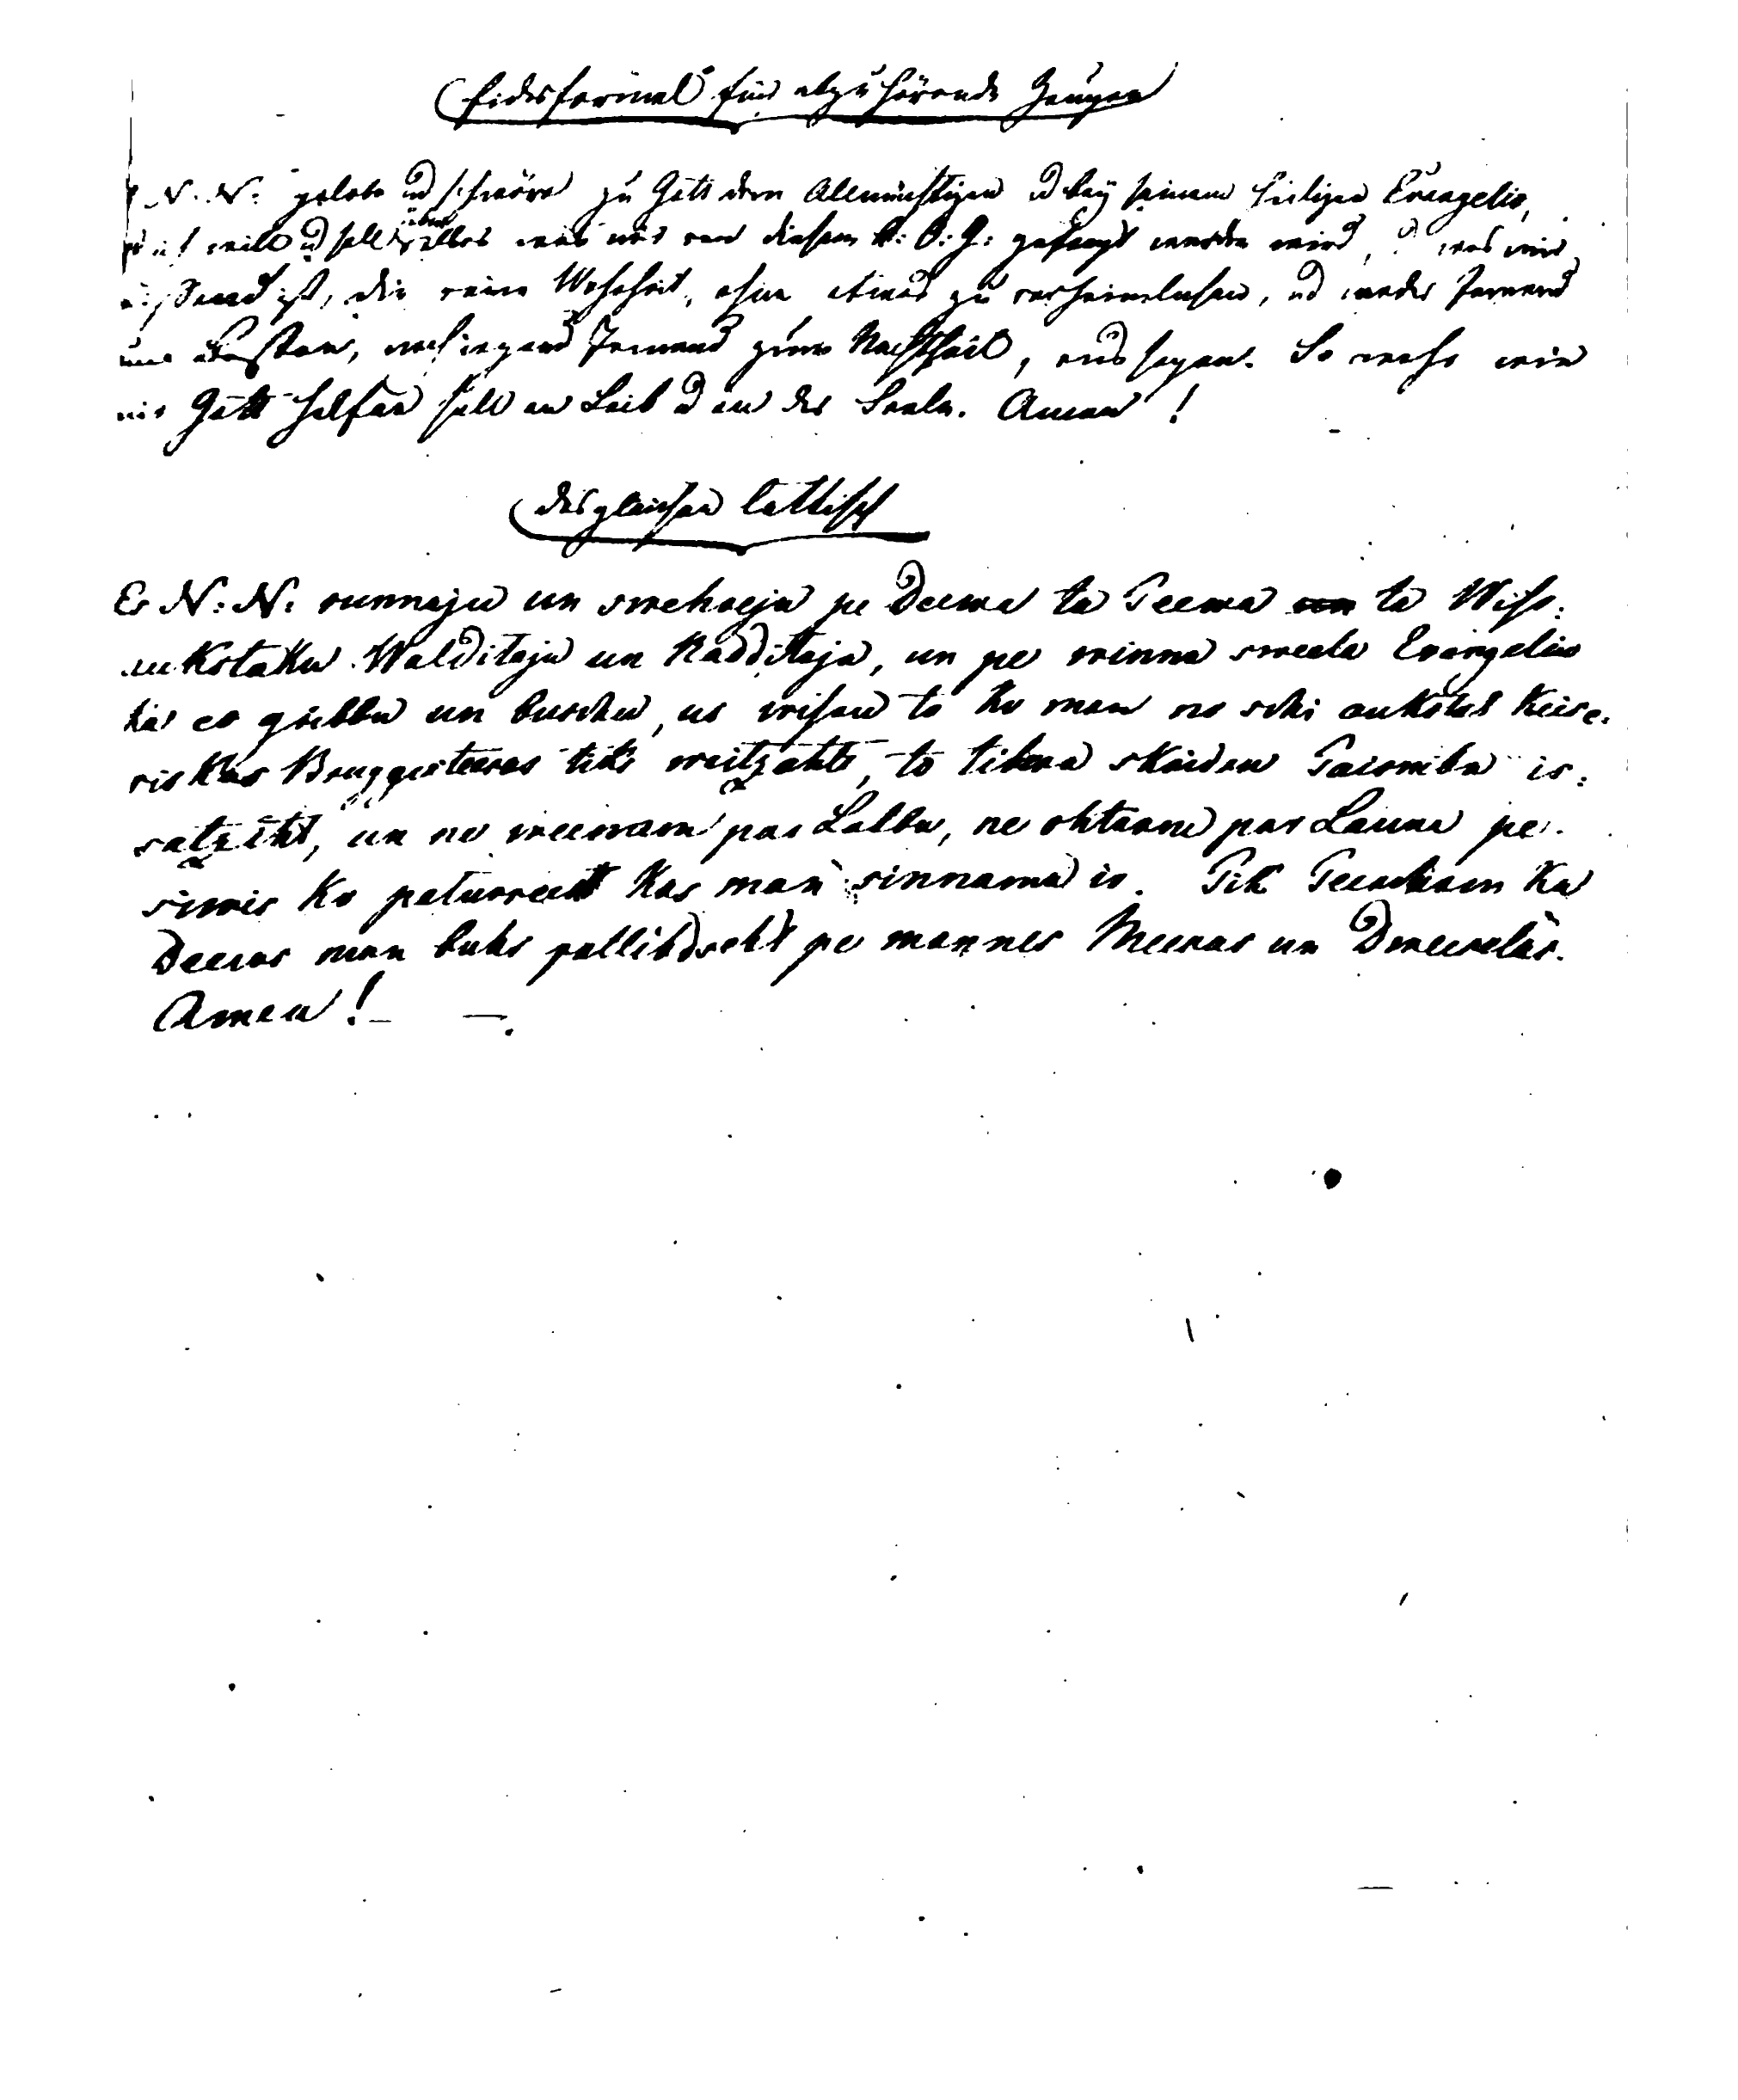 Eidesformel für abzuhörende Zeugen
N. N. gelobe und schwöre zu Gott dem Allmächtigen und bey seinem heiligen Evangelio,
ich will und soll über alles was mir von diesem K: O: G: gefragt werden wird, was mir
wissend ist, die reine Wahrheit, ohne etwas zu verheimlichen, und weder Jemand
zum Besten, noch irgend Jemand zum Nachtheil, aussagen. So wahr wie
mir Gott helfen soll an Leib und an der Seele. Amen!
desgleichen lettisch
Es N: N: runnaju un swehreju pe Deewa ta Teewa ta Wiss:
aukstaku Walditaju un Radditaja, un pe winna sweeta Evangelium
ka es gribbu un buschu, us wissu to ko man no schi aukstas Keise:
riskas Bruggeteesas tiks waitzahts, to tikkai skaidru Taisnibu is:
satziht, un ne weenam par Labbu, ne ohtram par Launu pe
sewis ko paturreht kas man sinnama ir. Tik Teescham ka
Deews man buhs pallihdseht pe mannes Meesas un Dweeseles.
Amen!